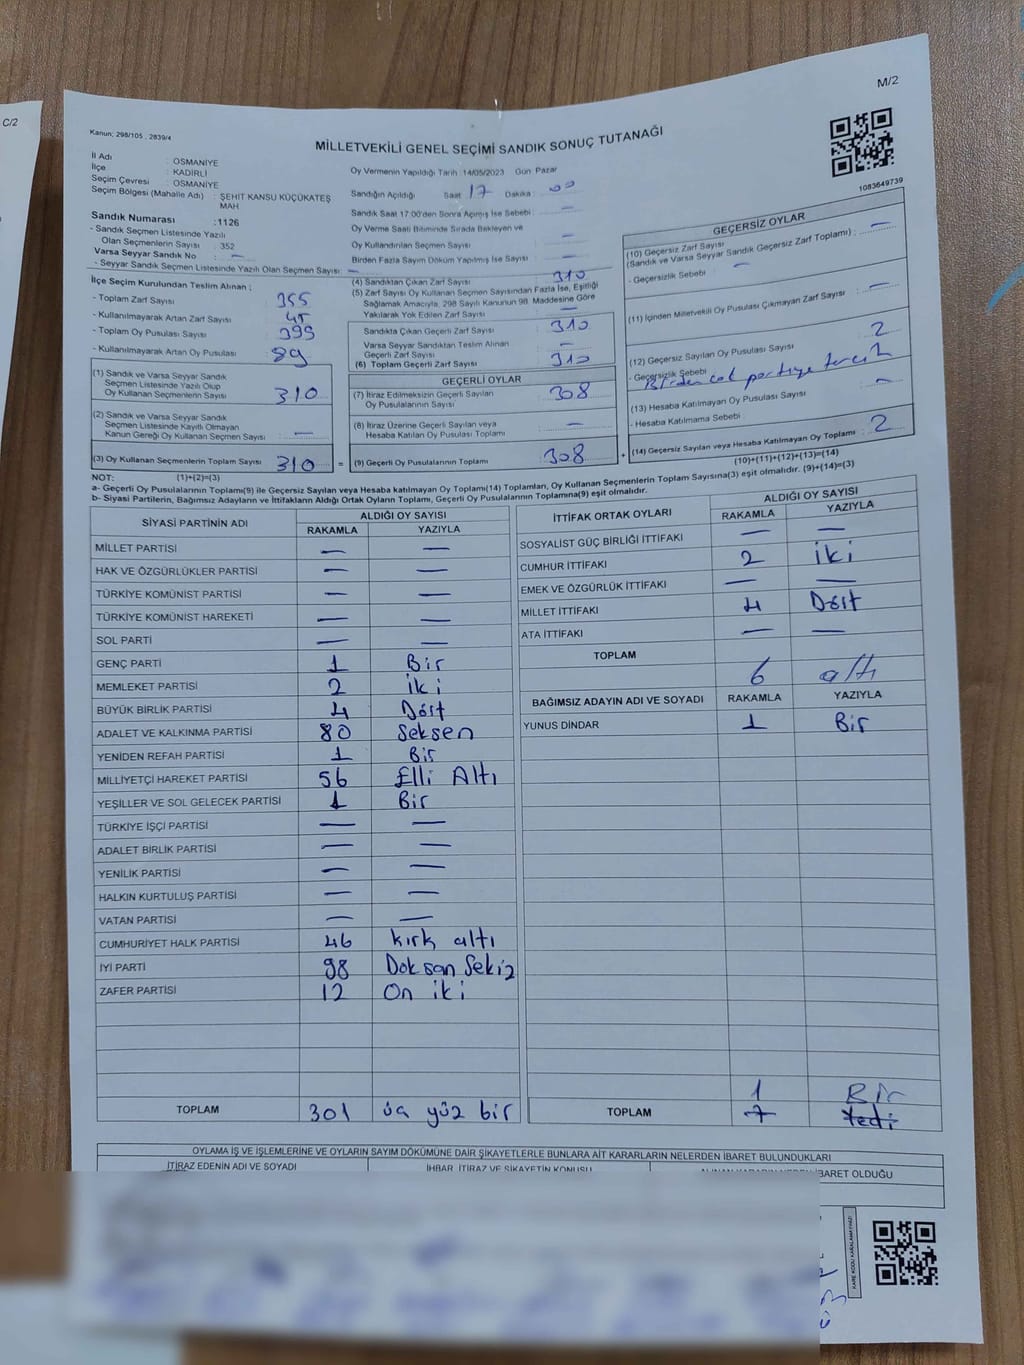 C/2
M/2
Kanun; 298/105 , 2839/4
MİLLETVEKİLİ GENEL SEÇİMİ SANDIK SONUÇ TUTANAĞI
1083649739
İl Adı : OSMANİYE
İlçe : KADİRLİ
Seçim Çevresi : OSMANİYE
Seçim Bölgesi (Mahalle Adı) : ŞEHİT KANSU KÜÇÜKATEŞ MAH
Sandık Numarası :1126
- Sandık Seçmen Listesinde Yazılı
Olan Seçmenlerin Sayısı : 352
Varsa Seyyar Sandık No : —
- Seyyar Sandık Seçmen Listesinde Yazılı Olan Seçmen Sayısı : —
Oy Vermenin Yapıldığı Tarih 14/05/2023 Gün Pazar
Sandığın Açıldığı Saat 17 Dakika : 00
Sandık Saat 17:00'den Sonra Açılmış İse Sebebi : —
Oy Verme Saati Bitiminde Sırada Bekleyen ve
Oy Kullandırılan Seçmen Sayısı —
Birden Fazla Sayım Döküm Yapılmış İse Sayısı : —
İlçe Seçim Kurulundan Teslim Alınan ;
- Toplam Zarf Sayısı 355
- Kullanılmayarak Artan Zarf Sayısı 45
- Toplam Oy Pusulası Sayısı 399
- Kullanılmayarak Artan Oy Pusulası 89
(1) Sandık ve Varsa Seyyar Sandık
Seçmen Listesinde Yazılı Olup
Oy Kullanan Seçmenlerin Sayısı 310
(2) Sandık ve Varsa Seyyar Sandık
Seçmen Listesinde Kayıtlı Olmayan
Kanun Gereği Oy Kullanan Seçmen Sayısı : —
(3) Oy Kullanan Seçmenlerin Toplam Sayısı 310 =
(4) Sandıktan Çıkan Zarf Sayısı 310
(5) Zarf Sayısı Oy Kullanan Seçmen Sayısından Fazla İse, Eşitliği
Sağlamak Amacıyla, 298 Sayılı Kanunun 98. Maddesine Göre
Yakılarak Yok Edilen Zarf Sayısı —
Sandıkta Çıkan Geçerli Zarf Sayısı 310
Varsa Seyyar Sandıktan Teslim Alınan
Geçerli Zarf Sayısı —
(6) Toplam Geçerli Zarf Sayısı 310
GEÇERLİ OYLAR
(7) İtiraz Edilmeksizin Geçerli Sayılan
Oy Pusulalarının Sayısı 308
(8) İtiraz Üzerine Geçerli Sayılan veya
Hesaba Katılan Oy Pusulası Toplamı —
(9) Geçerli Oy Pusulalarının Toplamı 308 +
GEÇERSİZ OYLAR
(10) Geçersiz Zarf Sayısı
(Sandık ve Varsa Seyyar Sandık Geçersiz Zarf Toplamı) : —
- Geçersizlik Sebebi —
(11) İçinden Milletvekili Oy Pusulası Çıkmayan Zarf Sayısı —
(12) Geçersiz Sayılan Oy Pusulası Sayısı 2
- Geçersizlik Sebebi Birden çok partiye tercih
(13) Hesaba Katılmayan Oy Pusulası Sayısı —
- Hesaba Katılmama Sebebi
(14) Geçersiz Sayılan veya Hesaba Katılmayan Oy Toplamı 2
NOT: (1)+(2)=(3) (10)+(11)+(12)+(13)=(14)
a- Geçerli Oy Pusulalarının Toplamı(9) ile Geçersiz Sayılan veya Hesaba katılmayan Oy Toplamı(14) Toplamları, Oy Kullanan Seçmenlerin Toplam Sayısına(3) eşit olmalıdır. (9)+(14)=(3)
b- Siyasi Partilerin, Bağımsız Adayların ve İttifakların Aldığı Ortak Oyların Toplamı, Geçerli Oy Pusulalarının Toplamına(9) eşit olmalıdır.
SİYASİ PARTİNİN ADI ALDIĞI OY SAYISI
RAKAMLA YAZIYLA
MİLLET PARTİSİ — —
HAK VE ÖZGÜRLÜKLER PARTİSİ — —
TÜRKİYE KOMÜNİST PARTİSİ — —
TÜRKİYE KOMÜNİST HAREKETİ — —
SOL PARTİ — —
GENÇ PARTİ 1 Bir
MEMLEKET PARTİSİ 2 iki
BÜYÜK BİRLİK PARTİSİ 4 Dört
ADALET VE KALKINMA PARTİSİ 80 Seksen
YENİDEN REFAH PARTİSİ 1 Bir
MİLLİYETÇİ HAREKET PARTİSİ 56 Elli Altı
YEŞİLLER VE SOL GELECEK PARTİSİ 1 Bir
TÜRKİYE İŞÇİ PARTİSİ — —
ADALET BİRLİK PARTİSİ — —
YENİLİK PARTİSİ — —
HALKIN KURTULUŞ PARTİSİ — —
VATAN PARTİSİ — —
CUMHURİYET HALK PARTİSİ 46 kırk altı
İYİ PARTİ 98 Doksan Sekiz
ZAFER PARTİSİ 12 On iki
TOPLAM 301 üç yüz bir
İTTİFAK ORTAK OYLARI ALDIĞI OY SAYISI
RAKAMLA YAZIYLA
SOSYALİST GÜÇ BİRLİĞİ İTTİFAKI — —
CUMHUR İTTİFAKI 2 iki
EMEK VE ÖZGÜRLÜK İTTİFAKI — —
MİLLET İTTİFAKI 4 Dört
ATA İTTİFAKI — —
TOPLAM 6 altı
BAĞIMSIZ ADAYIN ADI VE SOYADI RAKAMLA YAZIYLA
YUNUS DİNDAR 1 Bir
1 Bir
TOPLAM 7 Yedi
OYLAMA İŞ VE İŞLEMLERİNE VE OYLARIN SAYIM DÖKÜMÜNE DAİR ŞİKAYETLERLE BUNLARA AİT KARARLARIN NELERDEN İBARET BULUNDUKLARI
İTİRAZ EDENİN ADI VE SOYADI İHBAR, İTİRAZ VE ŞİKAYETİN KONUSU ALINAN KARARIN NEDEN İBARET OLDUĞU
KARE KODU KARALAMAYINIZ!